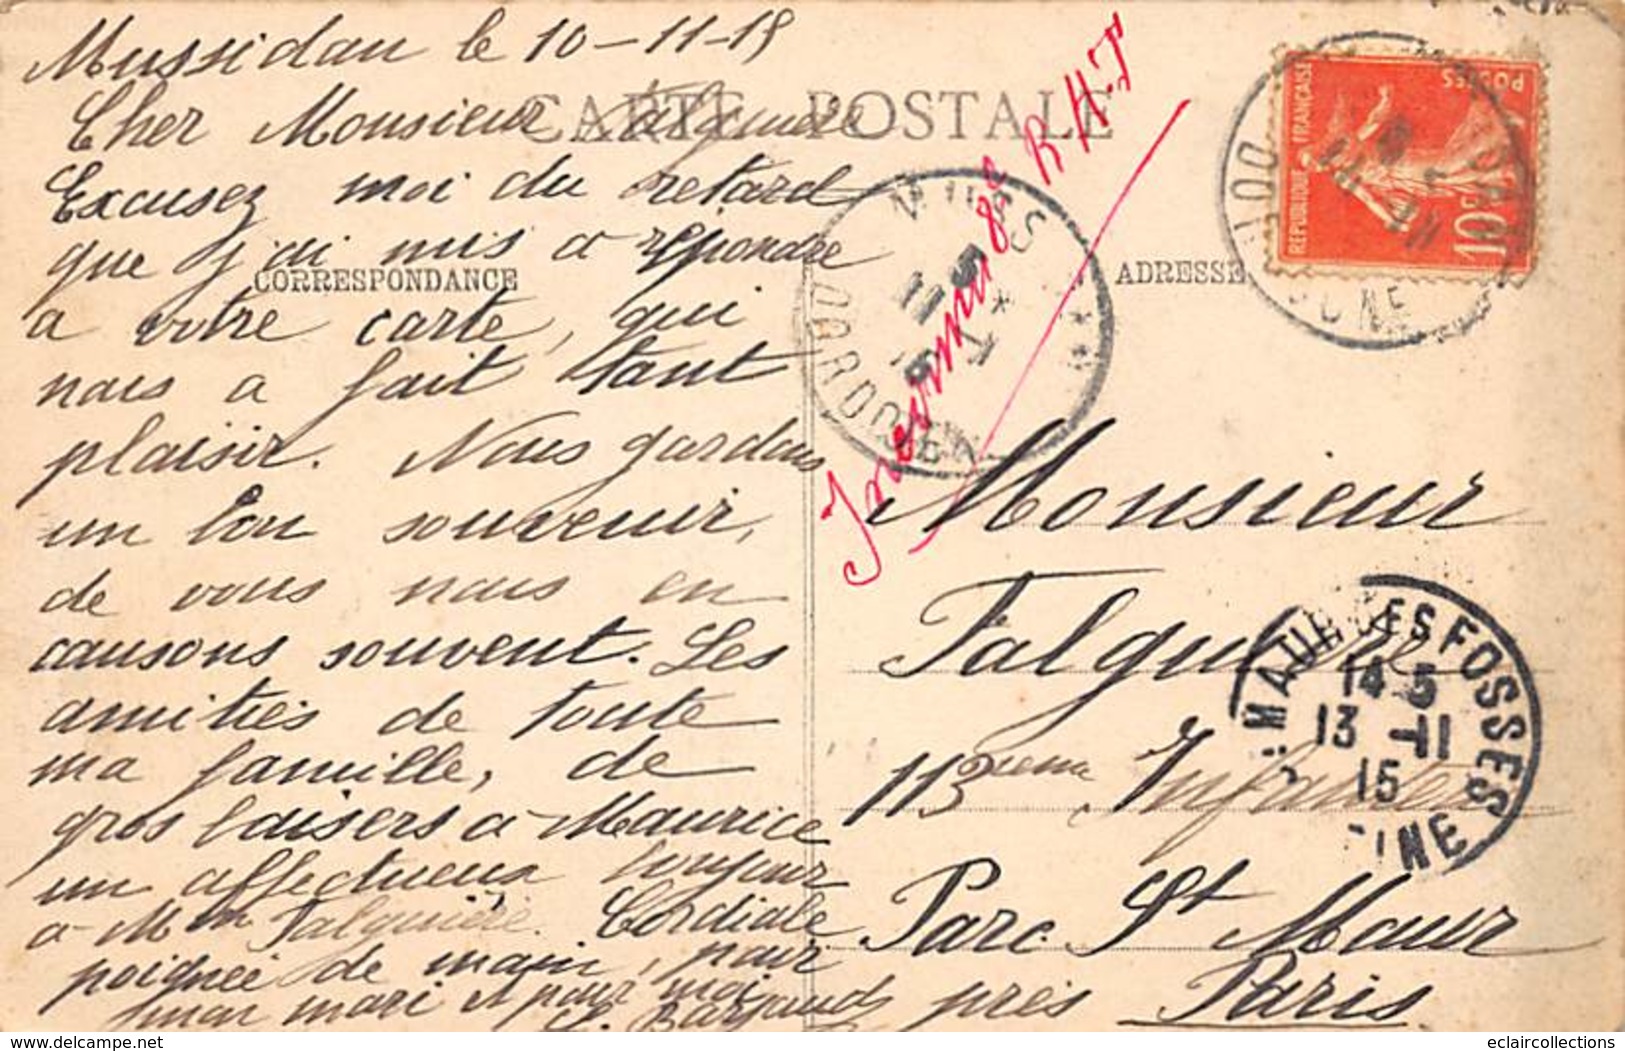 Mussidan le 10-11-15
CARTE POSTALE
Cher Monsieur Falguière
Excusez moi du retard
que j'ai mis a répondre
CORRESPONDANCE
a votre carte, qui
nous a fait tant
plaisir. Nous gardons
un bon souvenir,
de vous nous en
causons souvent. Les
amitiés de toute
ma famille, de
gros baisers a Maurice
un affectueux bonjour
a Mme Falguière. Cordiale
poignée de main, pour
mon mari et pour moi
Inconnu 8 R H T
ADRESSE
REPUBLIQUE FRANÇAISE
POSTES
10c
DORDOGNE
11
15
Monsieur
Falguière
113ieme Infanterie
Parc St Maur
près Paris
MAUR LES FOSSES
14 5
13 - 11
15
SEINE
eclaircollections.com